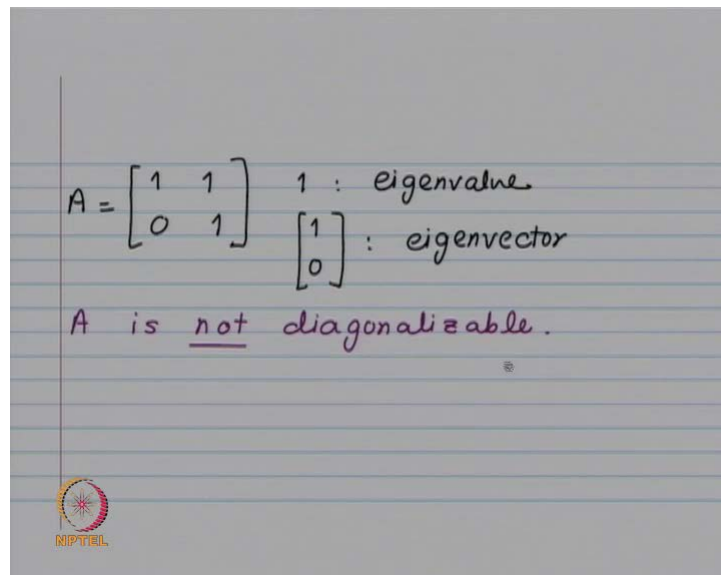 A = [1 1; 0 1] 1 : eigenvalue
[1; 0] : eigenvector
A is not diagonalizable.
NPTEL